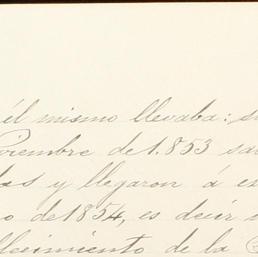 él mismo llevaba: s
oviembre de 1.853 sa
das y llegaron á e
o de 1854, es decir
llecimiento de la